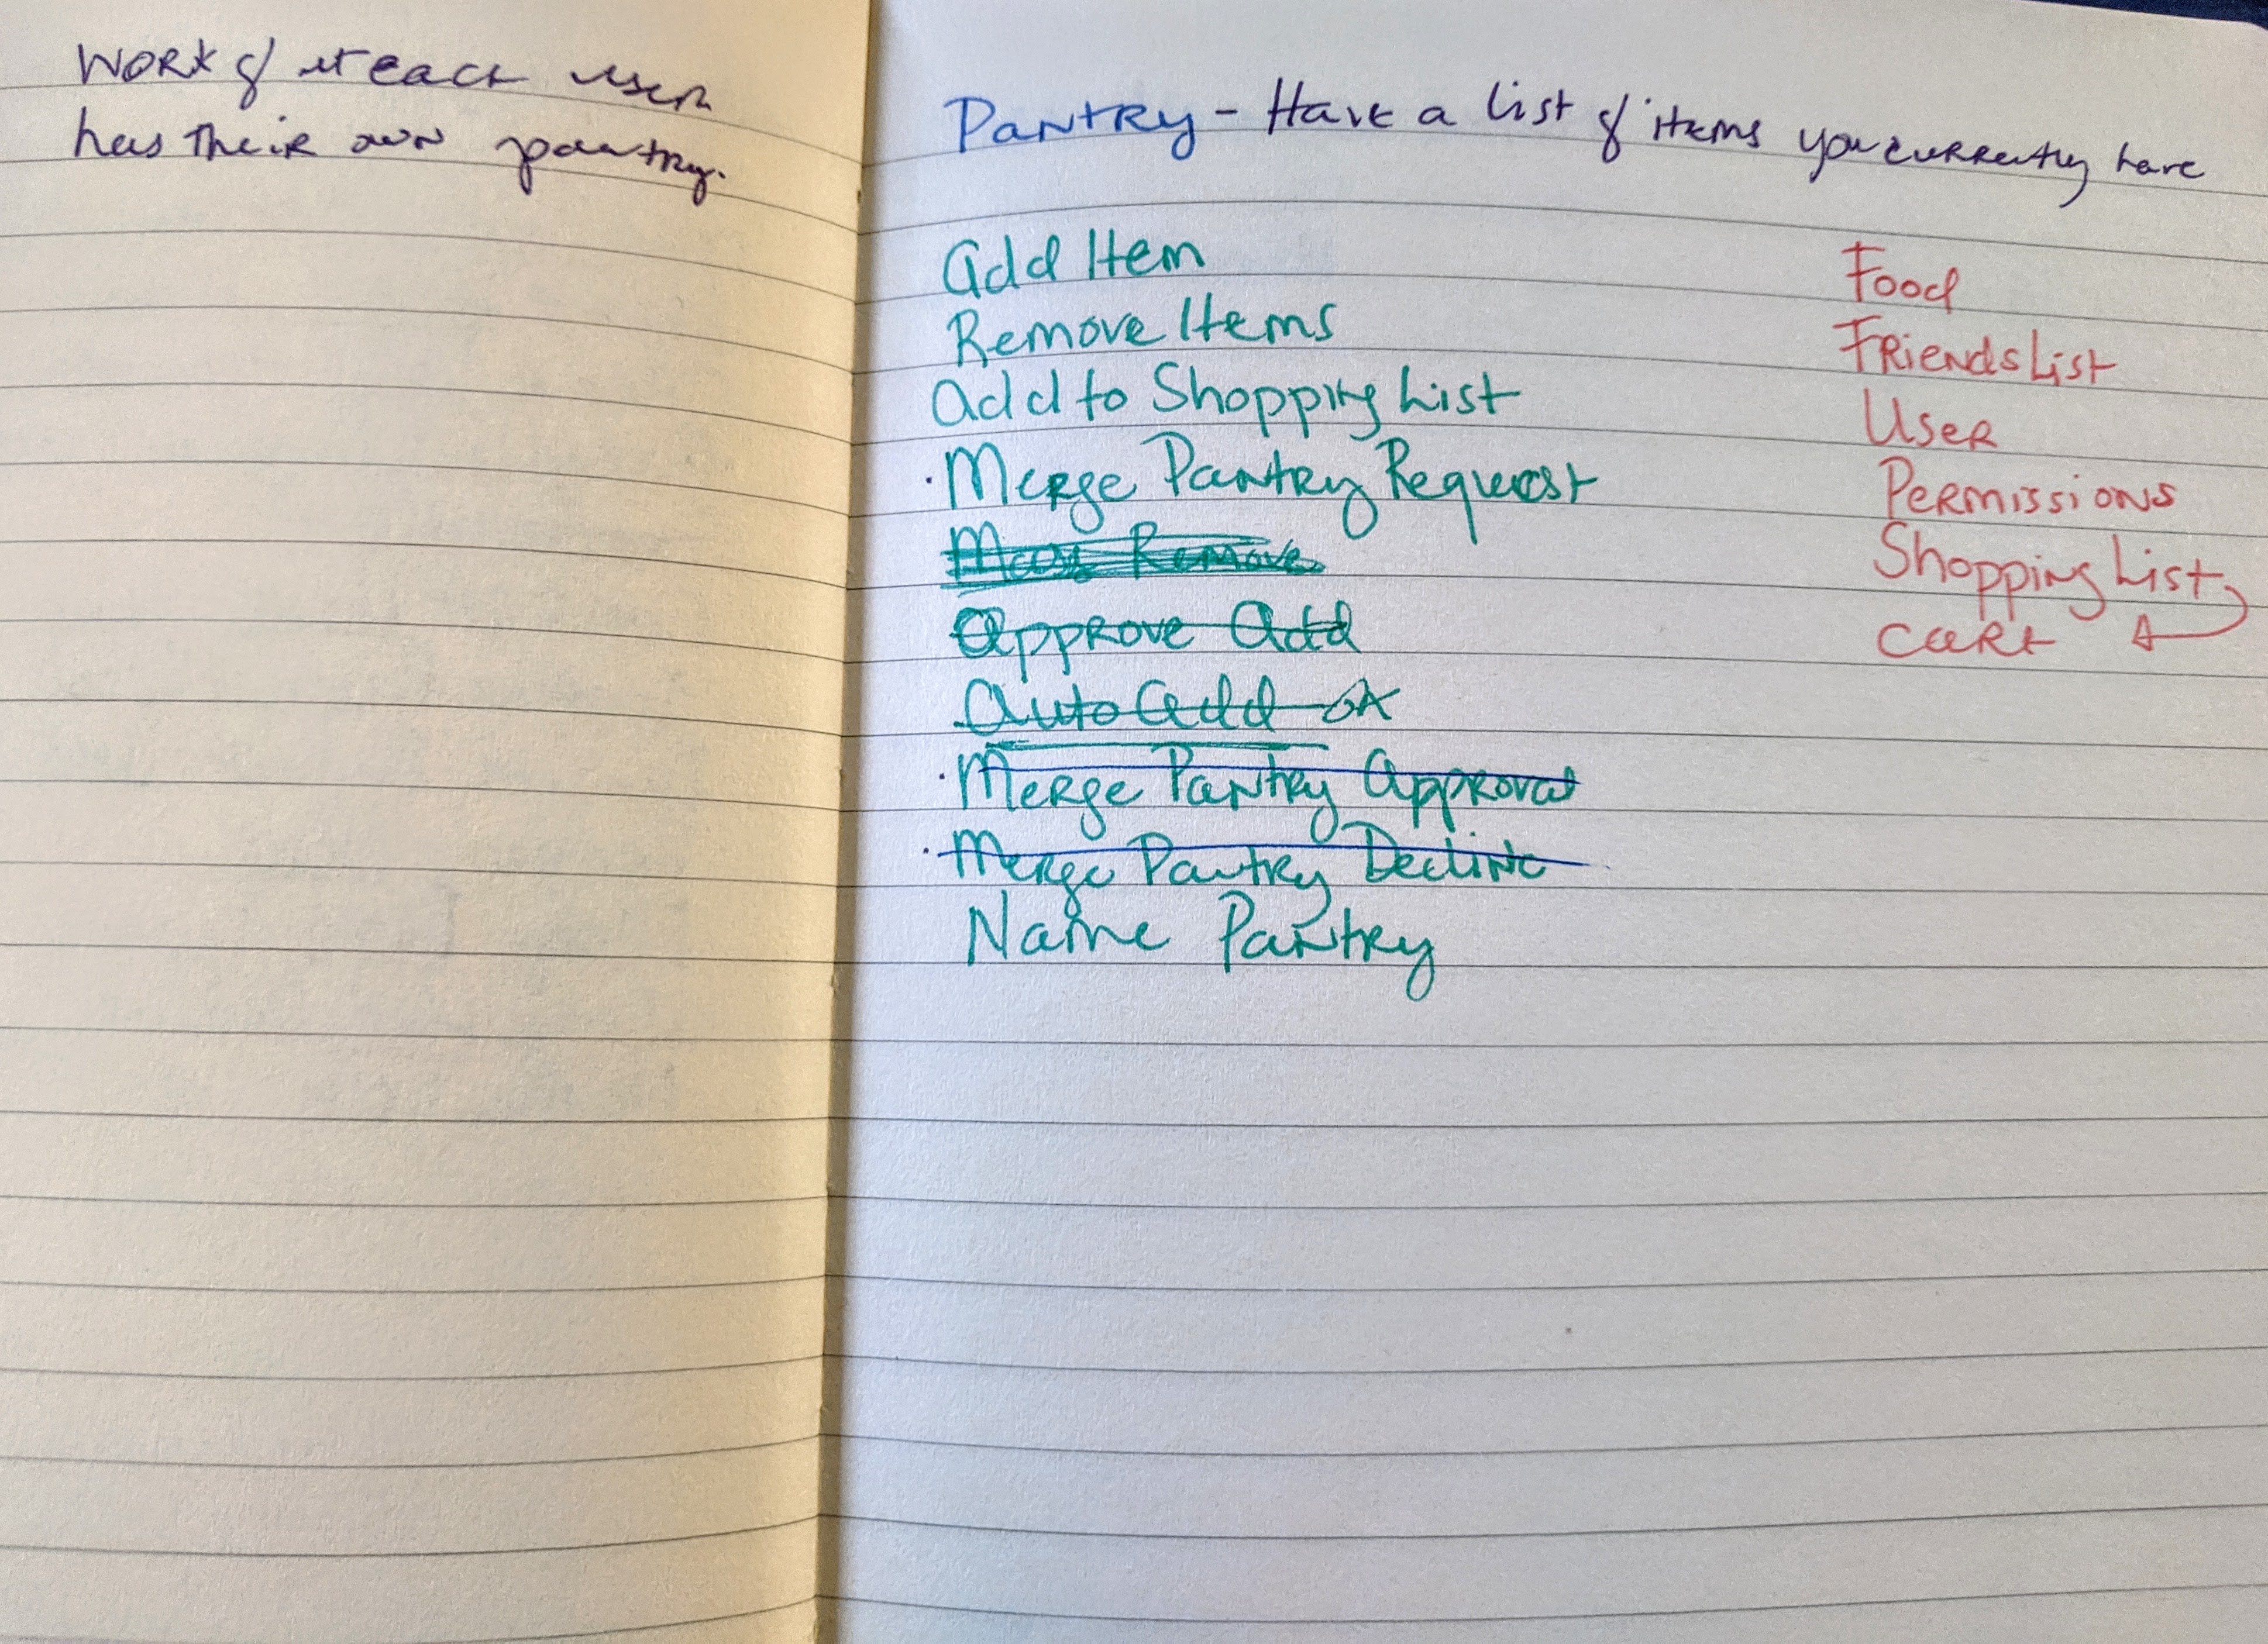 Work of it each user
has their own pantry.
Pantry - Have a list of items you currently have
Add Item
Remove Items
Add to Shopping List
· Merge Pantry Request
Remove
Approve Add
Auto Add OK
· Merge Pantry Approval
· Merge Pantry Decline
Name Pantry
Food
Friends List
User
Permissions
Shopping List
Cart